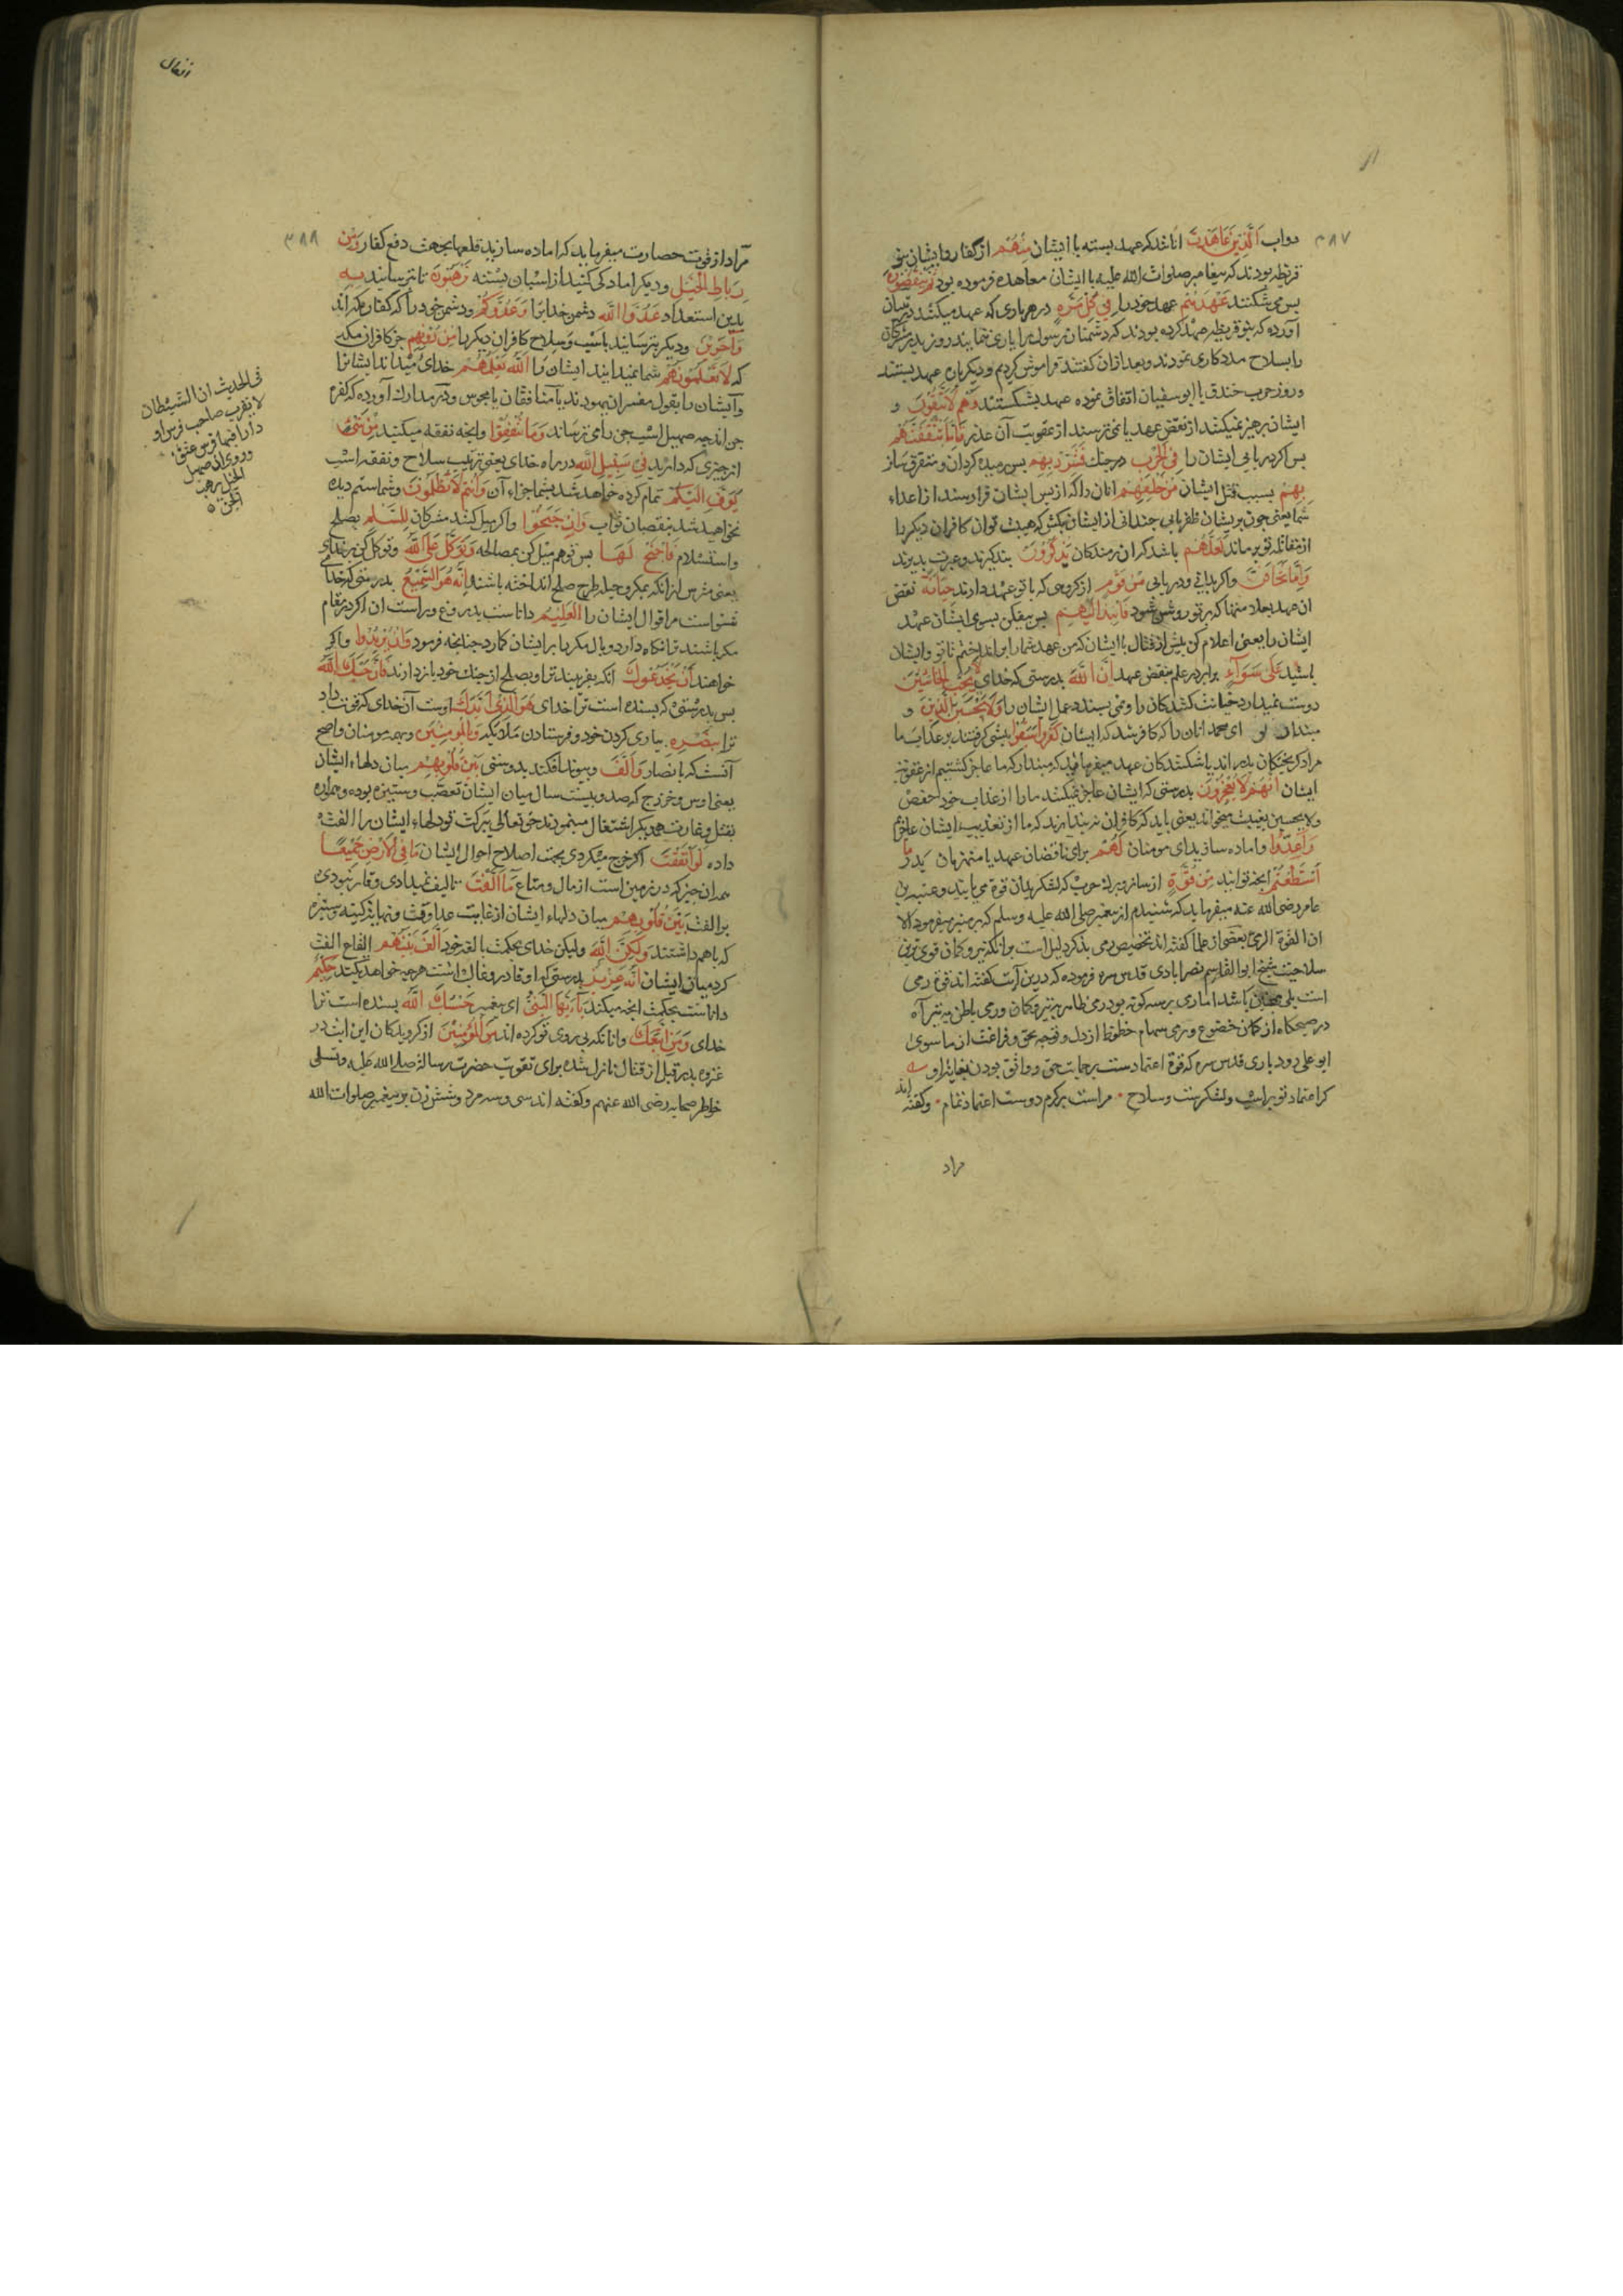 ٣٨٧
دواب الَّذِينَ عَاهَدْتَ انانند که عهد بسته با ایشان مِنْهُمْ از کفار و ایشان بنو
قریظه بودند که پیغامبر صلوات الله علیه با ایشان معاهده فرموده بود ثُمَّ يَنْقُضُونَ
پس می شکنند عَهْدَهُمْ عهد خود را فِي كُلِّ مَرَّةٍ در هر باری که عهد میکنند در تبیان
آورده که بنو قریظه عهد کرده بودند که دشمنان رسول را یاری ننمایند روز بدر مشرکان
را بسلاح مددکاری نمودند و بعد از ان گفتند فراموش کردیم و دیگرباره عهد بستند
و روز حرب خندق با ابوسفیان اتفاق نموده عهد بشکستند وَهُمْ لَا يَتَّقُونَ و
ایشان پرهیز نمیکنند از نقض عهد یا نمی ترسند از عقوبت آن عذر فَإِمَّا تَثْقَفَنَّهُمْ
پس اگر دریابی ایشان را فِي الْحَرْبِ در جنك فَشَرِّدْ بِهِمْ پس رمیده کردان و متفرق ساز
بِهِمْ بسبب قتل ایشان مَنْ خَلْفَهُمْ انان را که از پس ایشان فرا رسند از اعداء
شما یعنی چون بریشان ظفر یابی چندانی از ایشان بکش که هیبت توان کافران دیگر را
از مقاتله تو برماند لَعَلَّهُمْ باشد که ان رمندکان يَذَّكَّرُونَ پند گیرند و عبرت پذیرند
وَإِمَّا تَخَافَنَّ و اگر بدانی و دریابی مِنْ قَوْمٍ از گروهی که با تو عهد دارند خِيَانَةً نقض
ان عهد بعلامتها که بر تو روشن شود فَانْبِذْ إِلَيْهِمْ پس بیفکن بسوی ایشان عهد
ایشان را یعنی اعلام کن پیش از قتال با ایشان که من عهد شما را بر انداختم تا تو و ایشان
باشید عَلَى سَوَاءٍ برابر در علم بنقض عهد إِنَّ اللَّهَ بدرستی که خدای لَا يُحِبُّ الْخَائِنِينَ
دوست نمیدارد خیانت کنندکان را و نمی پسندد عمل ایشان را وَلَا يَحْسَبَنَّ الَّذِينَ و
مپندار تو ای محمد انان را که کافر شدند ایشان كَفَرُوا سَبَقُوا پیشی گرفتند بر عذاب ما
مراد گریختکان بدراند یا شکنندکان عهد میفرماید که مپندار که ما عاجز گشتیم از عقوبت
ایشان إِنَّهُمْ لَا يُعْجِزُونَ بدرستی که ایشان عاجز نمیکنند ما را از عذاب خود حفص
ولا یحسبن بغیبت میخواند یعنی باید که کافران نپندارند که ما از تعذیب ایشان عاجزیم
وَأَعِدُّوا و اماده سازید ای مومنان لَهُمْ برای ناقضان عهد یا منهزمان بدر مَا
اسْتَطَعْتُمْ آنچه توانید مِنْ قُوَّةٍ از ساز و یراق حرب که لشکر بدان قوة می یابد و عقبه بن
عامر رضی الله عنه میفرماید که شنیدم از پیغمبر صلی الله علیه وسلم که بر منبر میفرمود الا
ان القوة الرمی بعضی از علما گفته اند تخصیص رمی بذکر دلیل است بر آنکه تیر و کمان قوی ترین
سلاحهاست شیخ ابوالقاسم نصرابادی قدس سره فرموده که درین آیت گفته اند قوة رمی
است بلی همچنین باشد اما رمی بر سه گونه بود رمی ظاهر به تیر و کمان و رمی باطن به تیر آه
در صبحکاه از کمان خضوع و رمی سهام حظوظ از دل و توجه بحق و فراغت از ماسوی
ابو علی رودباری قدس سره که قوة اعتماد ست بر حمایت حق و واثق بودن بعنایت او
کر اعتماد تو براسپ و لشکرست و سلاح · مراست بر کرم دوست اعتماد تمام · و گفته اند
مراد
انفال
٣٨٨
مراد از قوت حصارست میفرماید که اماده سازید قلعها بجهت دفع کفار وَمِنْ
رِبَاطِ الْخَيْلِ و دیکر اماد کی کنید از اسبان بسته تُرْهِبُونَ تا بترسانید بِهِ
بدین استعداد عَدُوَّ اللَّهِ دشمن خدایرا وَعَدُوَّكُمْ و دشمن خود را که کفار مکه اند
وَآخَرِينَ و دیکر بترسانید باسپ و سلاح کافران دیکر را مِنْ دُونِهِمْ جز کافران مکه
که لَا تَعْلَمُونَهُمْ شما نمیدانید ایشان را اللَّهُ يَعْلَمُهُمْ خدای میداند ایشانرا
و آیشان را بقول مفسران یهودند یا منافقان یا مجوس و در مدارك آورده که کفره
جن اند چه صهیل اسپ جن را می ترساند وَمَا تُنْفِقُوا و انچه نفقه میکنید مِنْ شَيْءٍ
از چیزی که دارید فِي سَبِيلِ اللَّهِ در راه خدای یعنی ترتیب سلاح و نفقه اسب
يُوَفَّ إِلَيْكُمْ تمام کرده خواهد شد بشما جزاء آن وَأَنْتُمْ لَا تُظْلَمُونَ و شما ستم دیده
نخواهید شد بنقصان ثواب وَإِنْ جَنَحُوا و اکر میل کنند مشرکان لِلسَّلْمِ بصلح
و استسلام فَاجْنَحْ لَهَا پس تو هم میل کن بمصالحه وَتَوَكَّلْ عَلَى اللَّهِ و توکل کن بر خدای
یعنی مترس از انکه بمکر و حیله طرح صلح انداخته باشند إِنَّهُ هُوَ السَّمِيعُ بدرستی که خدا
شنواست مر اقوال ایشان را الْعَلِيمُ داناست بدروغ و راست ان اکر در مقام
مکر باشند ترا نکاه دارد و وبال مکر را بر ایشان کمارد چنانچه فرمود وَإِنْ يُرِيدُوا و اکر
خواهند أَنْ يَخْدَعُوكَ انکه بفریبند ترا و بصلح از جنك خود باز دارند فَإِنَّ حَسْبَكَ اللَّهُ
پس بدرستی که بسنده است ترا خدای هُوَ الَّذِي أَيَّدَكَ اوست آن خدای که قوت داد
ترا بِنَصْرِهِ بیاری کردن خود و فرستادن ملائکه وَبِالْمُؤْمِنِينَ و بهمه مومنان و اصح
آنست که بانصار وَأَلَّفَ و پیوند افکند بدوستی بَيْنَ قُلُوبِهِمْ میان دلهاء ایشان
یعنی اوس و خزرج که صد و بیست سال میان ایشان تعصب و ستیزه بوده و همواره
بقتل و غارت همدیکر اشتغال مینمودند حق تعالی ببرکت تو دلهاء ایشان را الفت
داده لَوْ أَنْفَقْتَ اکر خرج میکردی بجهت اصلاح احوال ایشان مَا فِي الْأَرْضِ جَمِيعًا
همه ان چیز که در زمین است از مال و متاع مَا أَلَّفْتَ تالیف نمیدادی و قادر نبودی
بر الفت بَيْنَ قُلُوبِهِمْ میان دلهاء ایشان از غایت عداوت و نهایت کینه و ستیزه
که باهم داشتند وَلَكِنَّ اللَّهَ ولیکن خدای بحکمت بالغه خود أَلَّفَ بَيْنَهُمْ ایقاع الفت
کرد میان ایشان إِنَّهُ عَزِيزٌ بدرستی که او قادر و غالب است هر چه خواهد بکند حَكِيمٌ
داناست بحکمت انچه میکند يَا أَيُّهَا النَّبِيُّ ای پیغمبر حَسْبُكَ اللَّهُ بسنده است ترا
خدای وَمَنِ اتَّبَعَكَ و انانکه پی روی تو کرده اند مِنَ الْمُؤْمِنِينَ از کرویدکان این ایت در
غزوه بدر قبل از قتال نازل شده برای تقویت حضرت رسالة صلی الله علیه و تسلی
خاطر صحابه رضی الله عنهم و گفته اند سی و سه مرد و شش زن بر پیغمبر صلوات الله
فی الحدیث ان الشیطان
لا یقرب صاحب فرس او
دارا فیها فرس عتیق
وروی ان صهیل
الخیل یرهب
الجن